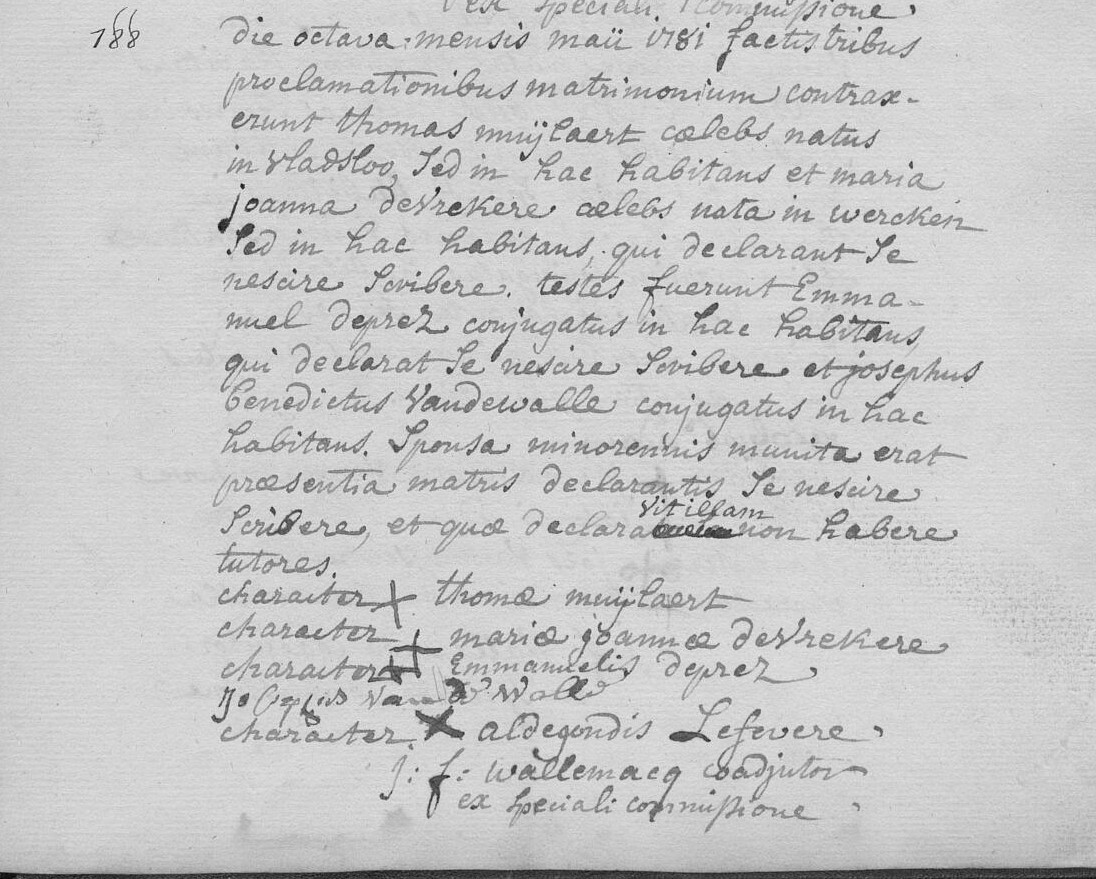 ex speciali commissione
188
die octava mensis maii 1781 factis tribus
proclamationibus matrimonium contrax-
erunt thomas muÿlaert cœlebs natus
in vladsloo, sed in hac habitans et maria
joanna deVrekere cœlebs nata in wercken
sed in hac habitans, qui declarant se
nescire scribere. testes fuerunt Emma-
nuel deprez conjugatus in hac habitans,
qui declarat se nescire scribere et josephus
benedictus Vandewalle conjugatus in hac
habitans. sponsa minorennis munita erat
præsentia matris declarantis se nescire
vit illam
scribere, et quæ declara non habere
tutores.
character X thomæ muÿlaert
character + mariæ joannæ deVrekere
character Emmanuelis deprez
Josephus Van d Walle
character X aldegondis Lefevere
j: f: wallemacq coadjutor
ex speciali commissione